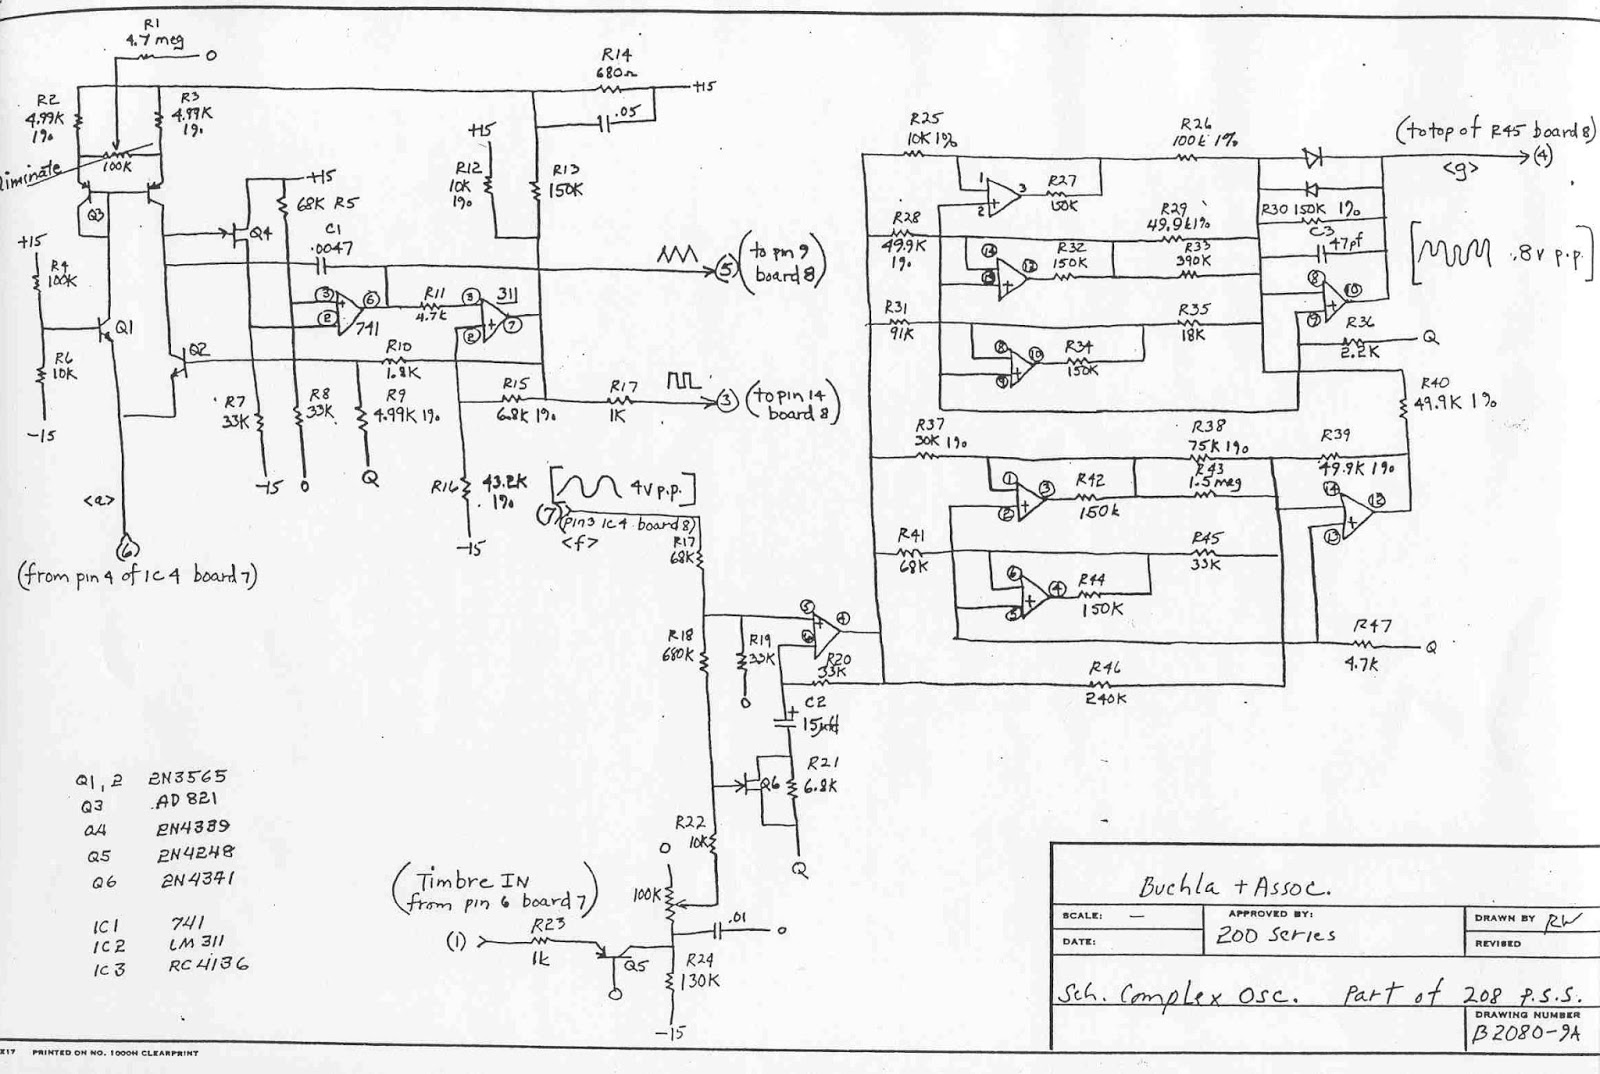 R1
4.7 meg
0
R2
4.99K
1%
R3
4.99K
1%
eliminate
100K
Q3
R14
680Ω
+15
.05
+15
R12
10K
1%
R13
150K
+15
68K R5
Q4
C1
.0047
+15
R4
100K
Q1
R6
10K
-15
Q2
3
2
6
741
R11
4.7K
3
2
311
7
5
(to pin 9
board 8)
R10
1.8K
R7
33K
-15
R8
33K
0
R9
4.99K 1%
Q
R15
6.8K 1%
R17
1K
3
(to pin 14
board 8)
R16
43.2K
1%
-15
<a>
6
(from pin 4 of IC 4 board 7)
[4V p.p.]
(7)
(pin 3 IC 4 board 8)
<f>
R17
68K
R18
680K
R19
33K
0
5
6
4
R20
33K
C2
+
15µf
Q6
R21
6.8K
Q
R22
10K
0
100K
(Timbre IN
from pin 6 board 7)
(1)
R23
1K
Q5
0
.01
0
R24
130K
-15
R25
10K 1%
1
2
3
R27
150K
R26
100K 1%
R28
49.9K
1%
14
13
12
R32
150K
R29
49.9K 1%
R33
390K
R31
91K
8
9
10
R34
150K
R35
18K
R30 150K 1%
C3
47pf
8
9
10
R36
2.2K
Q
(to top of R45 board 8)
<g>
(4)
[.8v p.p.]
R40
49.9K 1%
R37
30K 1%
1
2
3
R42
150K
R38
75K 1%
R43
1.5 meg
R39
49.9K 1%
14
13
12
R41
68K
6
5
4
R44
150K
R45
33K
R47
4.7K
Q
R46
240K
Q1,2 2N3565
Q3 AD821
Q4 2N4339
Q5 2N4248
Q6 2N4341
IC1 741
IC2 LM311
IC3 RC4136
Buchla + Assoc.
SCALE: —
APPROVED BY:
DRAWN BY RW
DATE:
200 series
REVISED
Sch. Complex Osc. Part of 208 P.S.S.
DRAWING NUMBER
B2080-9A
X17 PRINTED ON NO. 1000H CLEARPRINT